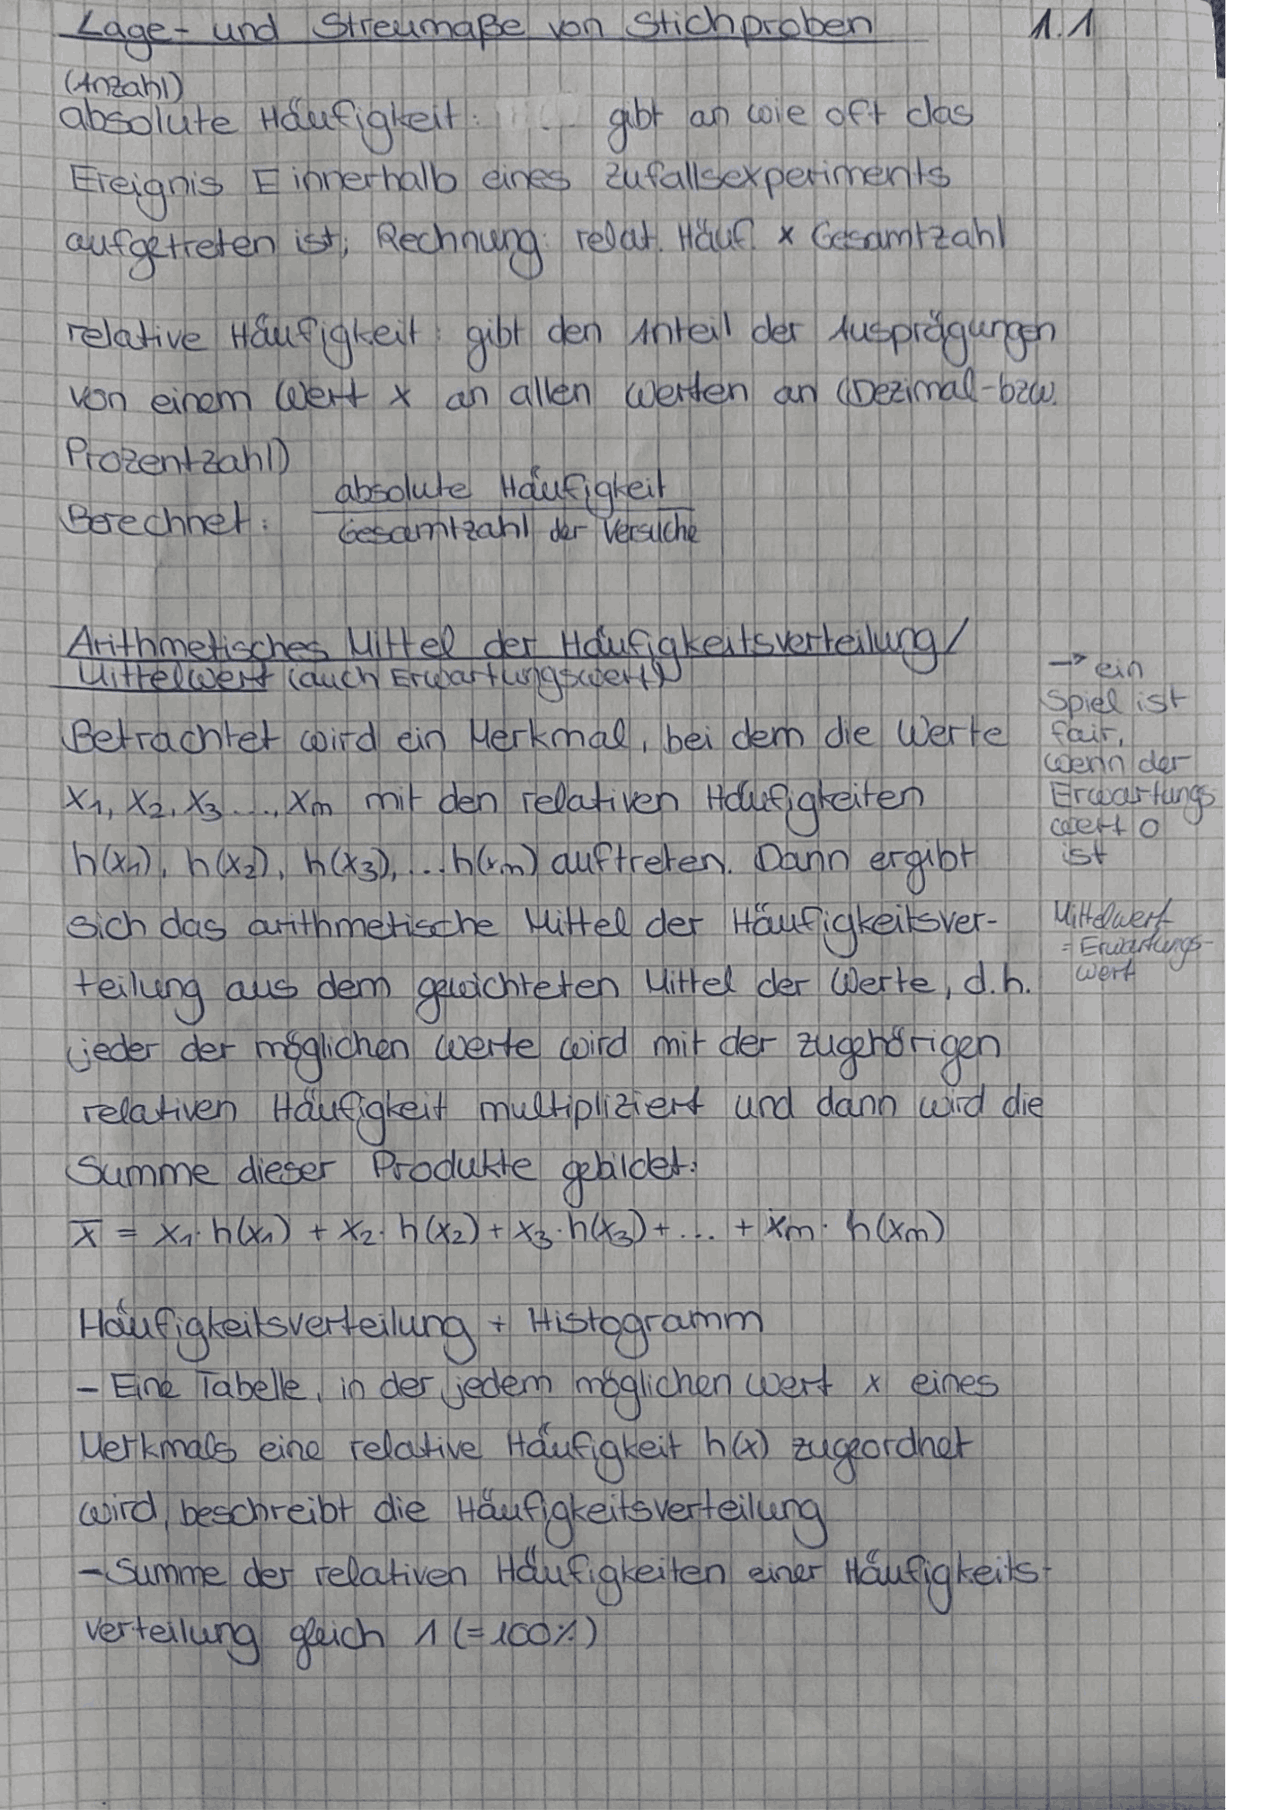 Lage- und Streumaße von Stichproben 1.1
(Anzahl)
absolute Häufigkeit: gibt an wie oft das
Ereignis E innerhalb eines Zufallsexperiments
aufgetreten ist; Rechnung: relat. Häuf. x Gesamtzahl
relative Häufigkeit: gibt den Anteil der Ausprägungen
von einem Wert x an allen Werten an (Dezimal- bzw.
Prozentzahl)
Berechnet: absolute Häufigkeit
Gesamtzahl der Versuche
Arithmetisches Mittel der Häufigkeitsverteilung/
Mittelwert (auch Erwartungswert)
Betrachtet wird ein Merkmal, bei dem die Werte
x₁, x₂, x₃ ..., xm mit den relativen Häufigkeiten
h(x₁), h(x₂), h(x₃), ...h(xm) auftreten. Dann ergibt
sich das arithmetische Mittel der Häufigkeitsver-
teilung aus dem gewichteten Mittel der Werte, d.h.
jeder der möglichen Werte wird mit der zugehörigen
relativen Häufigkeit multipliziert und dann wird die
Summe dieser Produkte gebildet:
x̅ = x₁· h(x₁) + x₂· h(x₂) + x₃· h(x₃) + ... + xm· h(xm)
→ ein
Spiel ist
fair,
wenn der
Erwartungs
wert 0
ist
Mittelwert
= Erwartungs-
wert
Häufigkeitsverteilung + Histogramm
- Eine Tabelle, in der jedem möglichen Wert x eines
Merkmals eine relative Häufigkeit h(x) zugeordnet
wird, beschreibt die Häufigkeitsverteilung
- Summe der relativen Häufigkeiten einer Häufigkeits-
verteilung gleich 1 (=100%)